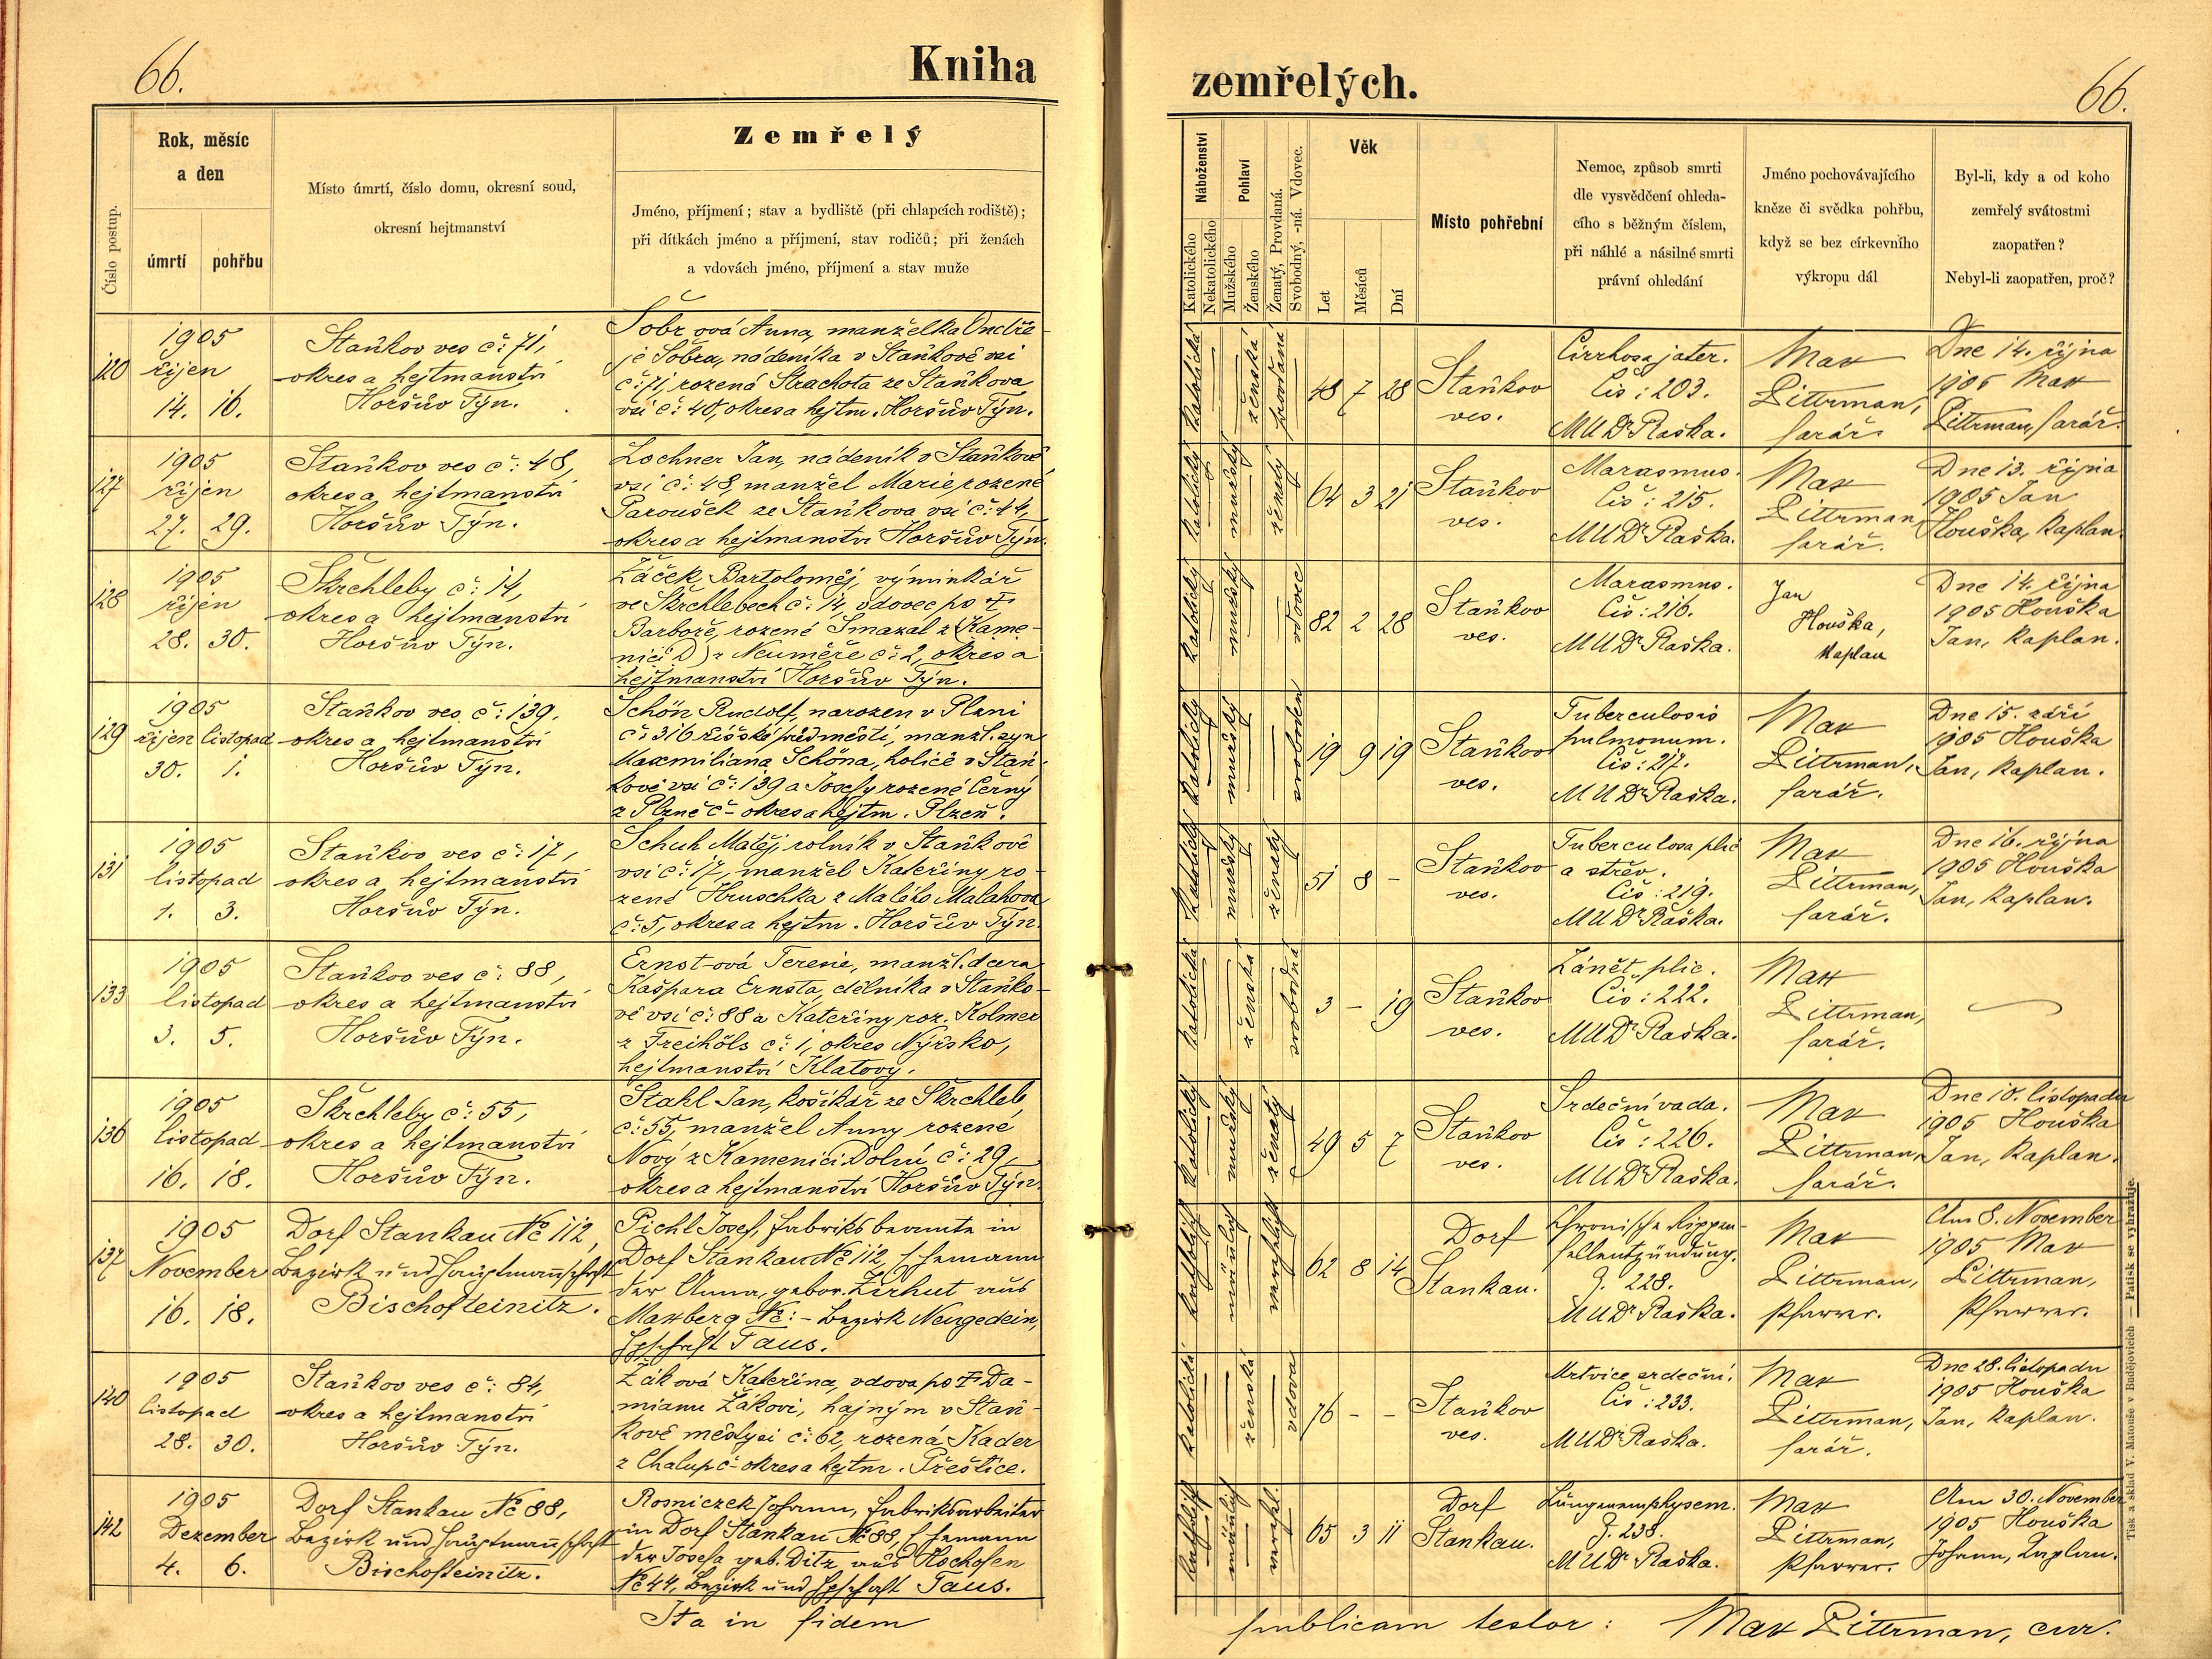 66.
Kniha
Číslo postup.
Rok, měsíc
a den
úmrtí
pohřbu
Místo úmrtí, číslo domu, okresní soud,
okresní hejtmanství
Zemřelý
Jméno, příjmení; stav a bydliště (při chlapcích rodiště);
při dítkách jméno a příjmení, stav rodičů; při ženách
a vdovách jméno, příjmení a stav muže
120
1905
říjen
14. 16.
Staňkov ves č: 71,
okres a hejtmanství
Horšův Týn.
Šobrová Anna, manželka Ondře-
je Šobra, nádeníka v Staňkově vsi
č: 71, rozená Strachota ze Staňkova
vsi č: 40, okres a hejtm. Horšův Týn.
127
1905
říjen
27. 29.
Staňkov ves č: 48,
okres a hejtmanství
Horšův Týn.
Lochner Jan, nádeník v Staňkově
vsi č: 48, manžel Marie, rozené
Paroušek ze Staňkova vsi č: 44,
okres a hejtmanství Horšův Týn.
128
1905
říjen
28. 30.
Škrchleby č: 14,
okres a hejtmanství
Horšův Týn.
Žáček Bartoloměj, výminkář
ve Škrchlebech č: 14, vdovec po †
Barboře, rozené Smazal z Kame-
nici D) z Neuměře č: 2, okres a
hejtmanství Horšův Týn.
129
1905
říjen listopad
30. 1.
Staňkov ves č: 139,
okres a hejtmanství
Horšův Týn.
Schön Rudolf, narozen v Plzni
č: 316 říšské předměstí, manžl. syn
Maxmiliana Schöna, holiče v Staň-
kově vsi č: 139 a Josefy rozené Černý
z Plzně č - okres a hejtm. Plzeň.
131
1905
listopad
1. 3.
Staňkov ves č: 17,
okres a hejtmanství
Horšův Týn.
Schuh Matěj, rolník v Staňkově
vsi č: 17, manžel Kateřiny ro-
zené Hruschka z Malého Malahova
č: 5, okres a hejtm. Horšův Týn.
133
1905
listopad
3. 5.
Staňkov ves č: 88,
okres a hejtmanství
Horšův Týn.
Ernst-ová Teresie, manžl. dcera
Kašpara Ernsta, dělníka v Staňko-
vě vsi č: 88 a Kateřiny roz. Kolmer
z Freihöls č: 1, okres Nýrsko,
hejtmanství Klatovy.
136
1905
listopad
16. 18.
Škrchleby č: 55,
okres a hejtmanství
Horšův Týn.
Stahl Jan, košíkář ze Škrchleb
č: 55, manžel Anny rozené
Nový z Kamenici Dolní č: 29,
okres a hejtmanství Horšův Týn.
137
1905
November
16. 18.
Dorf Stankau № 112,
Bezirk und Hauptmannschaft
Bischofteinitz.
Pichl Josef, Fabriksbeamte in
Dorf Stankau № 112, Ehemann
der Anna, gebor. Zirhut aus
Maxberg №: - Bezirk Neugedein,
Hptschaft Taus.
140
1905
listopad
28. 30.
Staňkov ves č: 84,
okres a hejtmanství
Horšův Týn.
Žáková Kateřina, vdova po † Da-
mianu Žákovi, hajným v Staň-
kově městysi č: 62, rozená Kader
z Chalup č - okres a hejtm. Přeštice.
142
1905
Dezember
4. 6.
Dorf Stankau № 88,
Bezirk und Hauptmannschaft
Bischofteinitz.
Rosniczek Johann, Fabriksarbeiter
in Dorf Stankau № 88, Ehemann
der Josefa geb. Ditz aus Hochofen
№ 44, Bezirk und Hptschaft Taus.
Ita in fidem
zemřelých.
66.
Náboženství
Katolického
Nekatolického
Pohlaví
Mužského
Ženského
Ženatý, Provdaná.
Svobodný, -ná. Vdovec.
Věk
Let
Měsíců
Dní
Místo pohřební
Nemoc, způsob smrti
dle vysvědčení ohleda-
cího s běžným číslem,
při náhlé a násilné smrti
právní ohledání
Jméno pochovávajícího
kněze či svědka pohřbu,
když se bez církevního
výkropu dál
Byl-li, kdy a od koho
zemřelý svátostmi
zaopatřen?
Nebyl-li zaopatřen, proč?
katolická
ženská
provdaná
48 7 28
Staňkov
ves.
Cirrhosa jater.
Čís: 203.
MUDr Raška.
Max
Dittrman,
farář.
Dne 14. října
1905 Max
Dittrman, farář.
katolický
mužský
ženatý
64 3 21
Staňkov
ves.
Marasmus.
Čís: 215.
MUDr Raška.
Max
Dittrman
farář.
Dne 13. října
1905 Jan
Houška, kaplan.
katolický
mužský
vdovec
82 2 28
Staňkov
ves.
Marasmus.
Čís: 216.
MUDr Raška.
Jan
Houška,
kaplan
Dne 14. října
1905 Houška
Jan, kaplan.
katolický
mužský
svoboden
19 9 19
Staňkov
ves.
Tuberculosis
pulmonum.
Čís: 217.
MUDr Raška.
Max
Dittrman,
farář.
Dne 15. září
1905 Houška
Jan, kaplan.
katolický
mužský
ženatý
51 8 -
Staňkov
ves.
Tuberculosa plic
a střev.
Čís: 219.
MUDr Raška.
Max
Dittrman,
farář.
Dne 16. října
1905 Houška
Jan, kaplan.
katolická
ženská
svobodná
3 - 19
Staňkov
ves.
Zánět plic.
Čís: 222.
MUDr Raška.
Max
Dittrman,
farář.
katolický
mužský
ženatý
49 5 7
Staňkov
ves.
Srdeční vada.
Čís: 226.
MUDr Raška.
Max
Dittrman,
farář.
Dne 10. listopadu
1905 Houška
Jan, kaplan.
katholisch
männlich
verehlicht
62 8 14
Dorf
Stankau.
Chronische Rippen-
fellentzündung.
Z. 228.
MUDr Raška.
Max
Dittrman,
Pfarrer.
Am 8. November
1905 Max
Dittrman,
Pfarrer.
katolická
ženská
vdova
76 - -
Staňkov
ves.
Mrtvice srdeční.
Čís: 233.
MUDr Raška.
Max
Dittrman,
farář.
Dne 28. listopadu
1905 Houška
Jan, kaplan.
katholisch
männlich
verehl.
65 3 11
Dorf
Stankau.
Lungenemphysem.
Z. 238.
MUDr Raška.
Max
Dittrman,
Pfarrer.
Am 30. November
1905 Houška
Johann, Kaplan.
publicam testor: Max Dittrman, cur.
Tisk a sklad V. Matouše v Budějovicích — Patisk se vyhražuje.